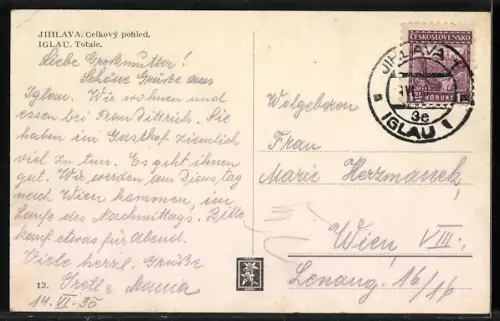 JIHLAVA. Celkový pohled.
IGLAU. Totale.
Liebe Großmutter!
Schöne Grüße aus
Iglau. Wir wohnen und
essen bei Frau Dittrich. Sie
haben im Gasthof ziemlich
viel zu tun. Es geht ihnen
gut. Wir werden am Dienstag
nach Wien kommen, im
Laufe des Nachmittags. Bitte
kauf etwas für Abend.
Viele herzl. Grüße
Gretl & Mama
12.
14. VI. 35
ČESKOSLOVENSKO
KORUNY
JIHLAVA 1
3e
IGLAU 1
Wolgeboren
Frau
Marie Herzmansek,
Wien, VIII.,
Lenaug. 16/16